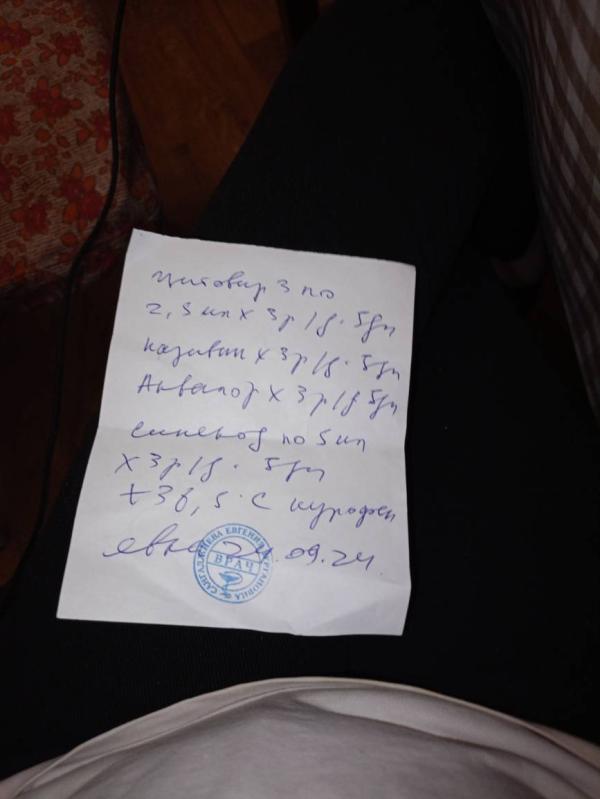 Цитовир 3 по
2,5 мл х 3р/д. 5дн
називин х 3р/д. 5дн
Аквалор х 3р/д 5дн
синекод по 5 мл
х 3р/д. 5дн
t 38,5°С нурофен
явка 24.09.24.
ЕВГЕНИЯ
ВРАЧ